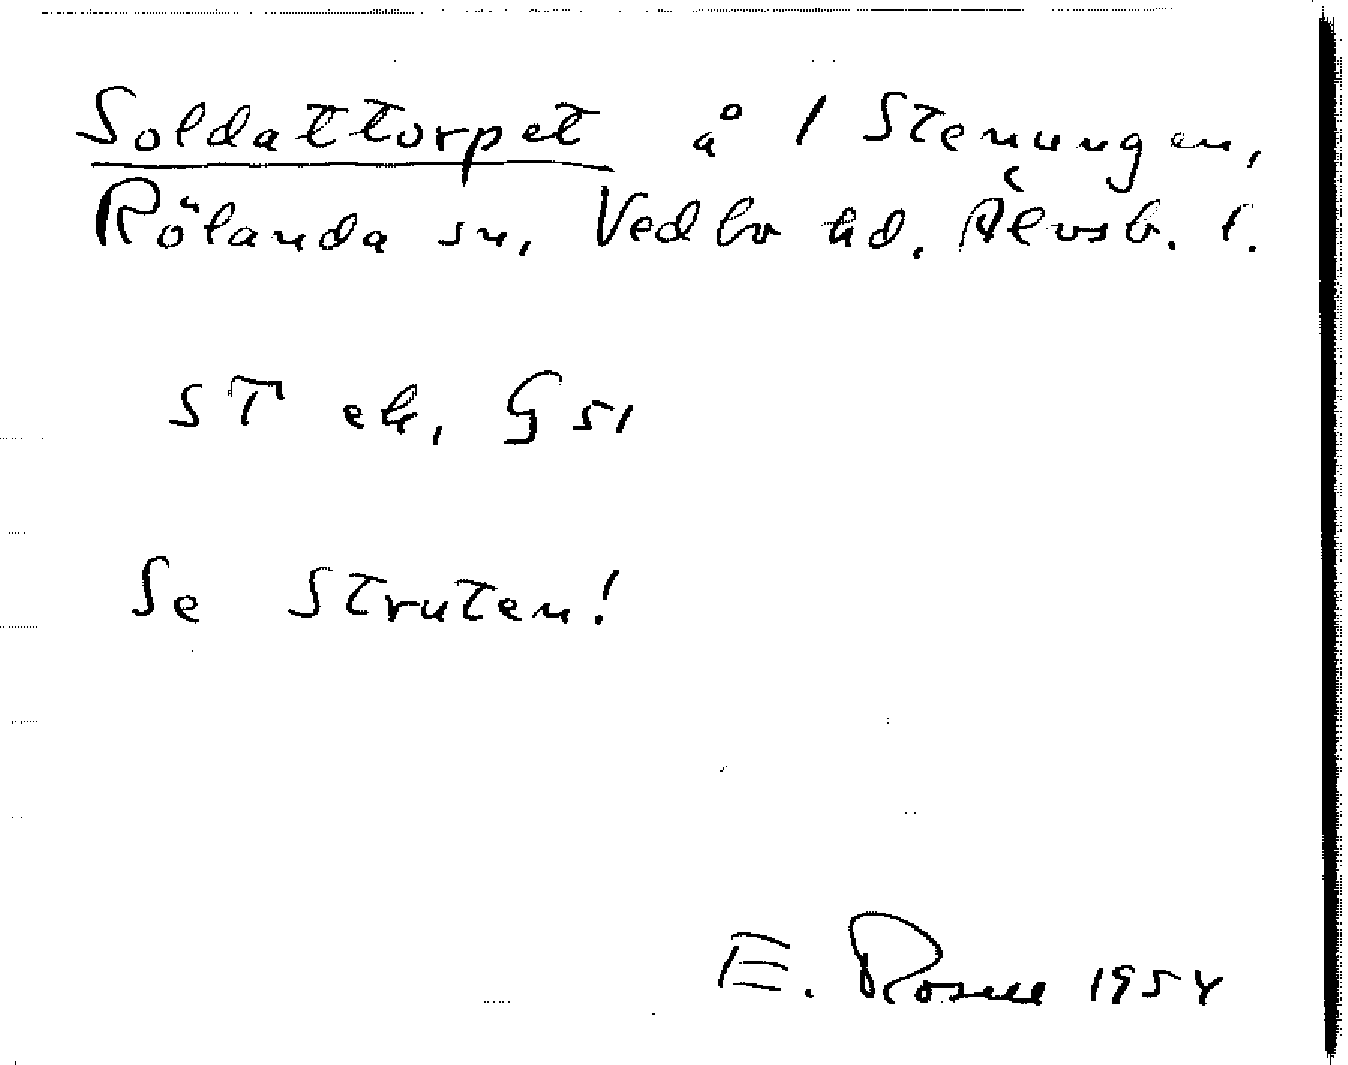 Soldattorpet å / Stenungen,
Rölanda sn, Vedbo hd, Älvsb. l.
ST ek, G 51
Se Struten!
E. Rosell 1954